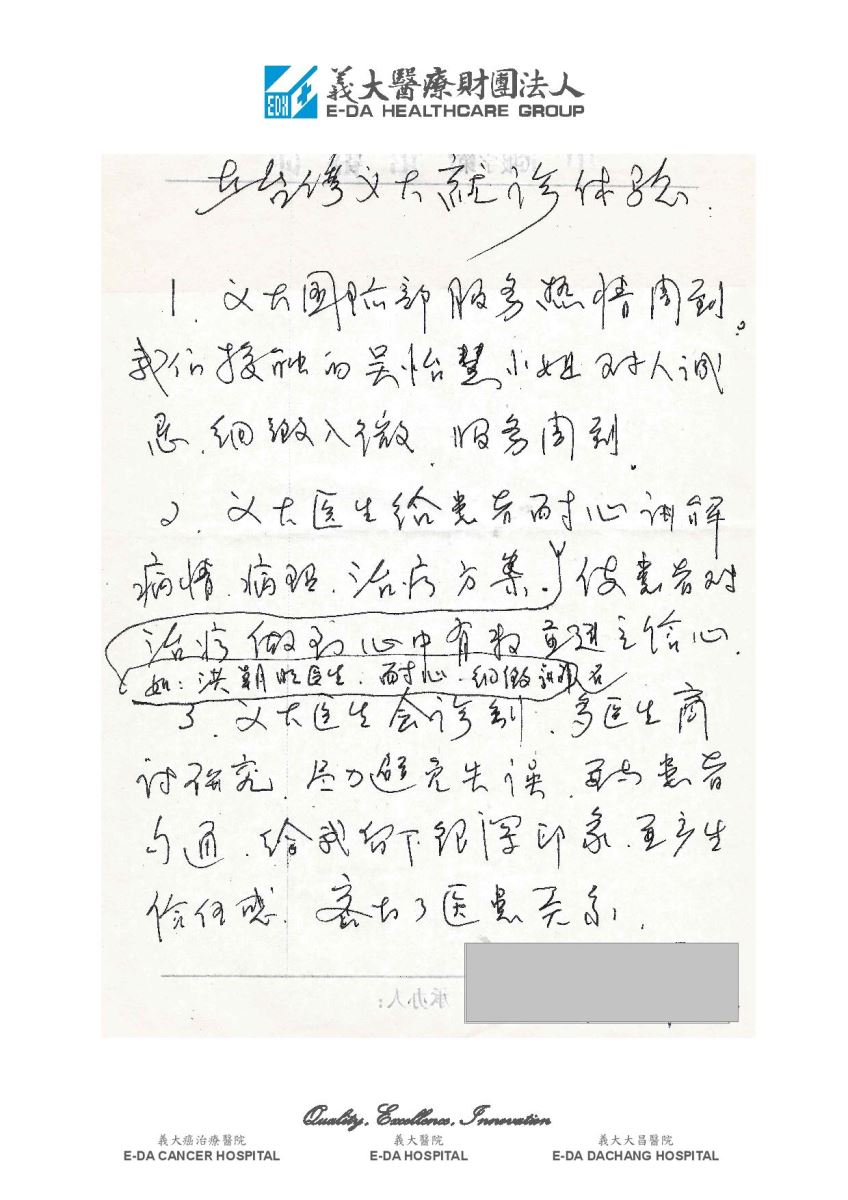 義大醫療財團法人
E-DA HEALTHCARE GROUP
EDH
义大就诊体验.
1. 义大国际部服务热情周到。
我们接触的吴怡慧小姐对人诚
恳.细致入微.服务周到.
2. 义大医生给患者耐心讲解
病情.病理.治疗方案.使患者对
治疗做到心中有数并建立信心.
如:洪朝明医生.耐心.细微
3. 义大医生会诊制.多医生商
讨研究.尽力避免失误.再与患者
沟通.给我留下很深印象.更产生
信任感.密切了医患关系.
承办人:
Quality, Excellence, Innovation
義大癌治療醫院 義大醫院 義大大昌醫院
E-DA CANCER HOSPITAL E-DA HOSPITAL E-DA DACHANG HOSPITAL